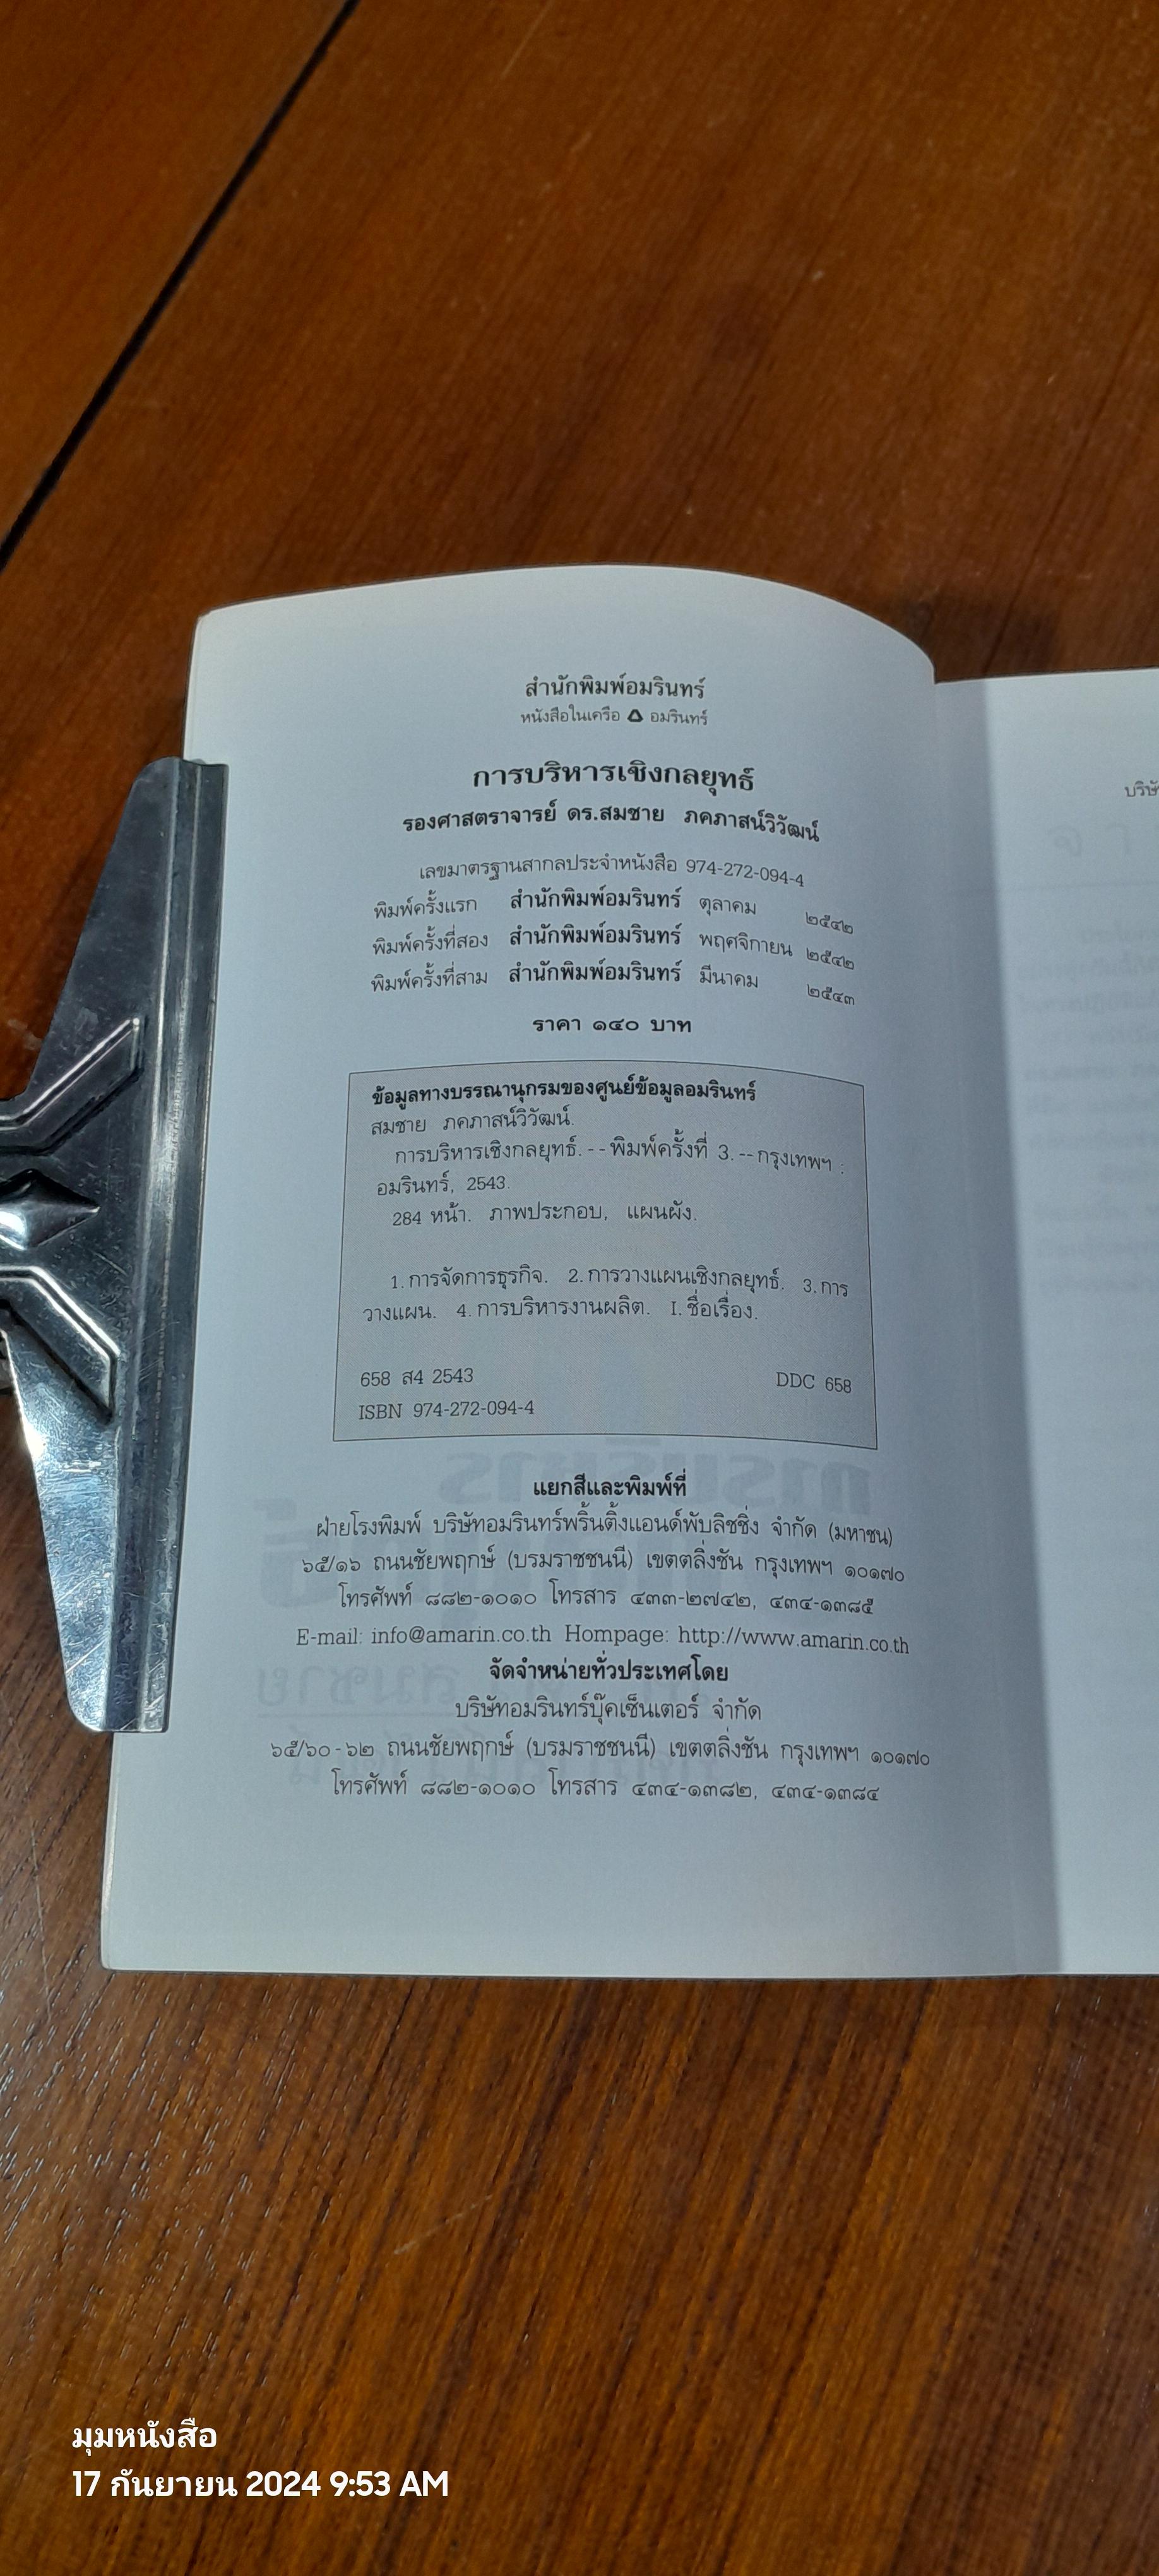 สำนักพิมพ์อมรินทร์
หนังสือในเครือ อมรินทร์
การบริหารเชิงกลยุทธ์
รองศาสตราจารย์ ดร.สมชาย ภคภาสน์วิวัฒน์
เลขมาตรฐานสากลประจำหนังสือ 974-272-094-4
พิมพ์ครั้งแรก สำนักพิมพ์อมรินทร์ ตุลาคม ๒๕๔๒
พิมพ์ครั้งที่สอง สำนักพิมพ์อมรินทร์ พฤศจิกายน ๒๕๔๒
พิมพ์ครั้งที่สาม สำนักพิมพ์อมรินทร์ มีนาคม ๒๕๔๓
ราคา ๑๔๐ บาท
ข้อมูลทางบรรณานุกรมของศูนย์ข้อมูลอมรินทร์
สมชาย ภคภาสน์วิวัฒน์.
การบริหารเชิงกลยุทธ์. -- พิมพ์ครั้งที่ 3. -- กรุงเทพฯ :
อมรินทร์, 2543.
284 หน้า. ภาพประกอบ, แผนผัง.
1. การจัดการธุรกิจ. 2. การวางแผนเชิงกลยุทธ์. 3. การ
วางแผน. 4. การบริหารงานผลิต. I. ชื่อเรื่อง.
658 ส4 2543 DDC 658
ISBN 974-272-094-4
แยกสีและพิมพ์ที่
ฝ่ายโรงพิมพ์ บริษัทอมรินทร์พริ้นติ้งแอนด์พับลิชชิ่ง จำกัด (มหาชน)
๖๕/๑๖ ถนนชัยพฤกษ์ (บรมราชชนนี) เขตตลิ่งชัน กรุงเทพฯ ๑๐๑๗๐
โทรศัพท์ ๘๘๒-๑๐๑๐ โทรสาร ๔๓๓-๒๗๔๒, ๔๓๔-๑๓๘๕
E-mail: info@amarin.co.th Hompage: http://www.amarin.co.th
จัดจำหน่ายทั่วประเทศโดย
บริษัทอมรินทร์บุ๊คเซ็นเตอร์ จำกัด
๖๕/๖๐-๖๒ ถนนชัยพฤกษ์ (บรมราชชนนี) เขตตลิ่งชัน กรุงเทพฯ ๑๐๑๗๐
โทรศัพท์ ๘๘๒-๑๐๑๐ โทรสาร ๔๓๔-๑๓๘๒, ๔๓๔-๑๓๘๔
มุมหนังสือ
17 กันยายน 2024 9:53 AM